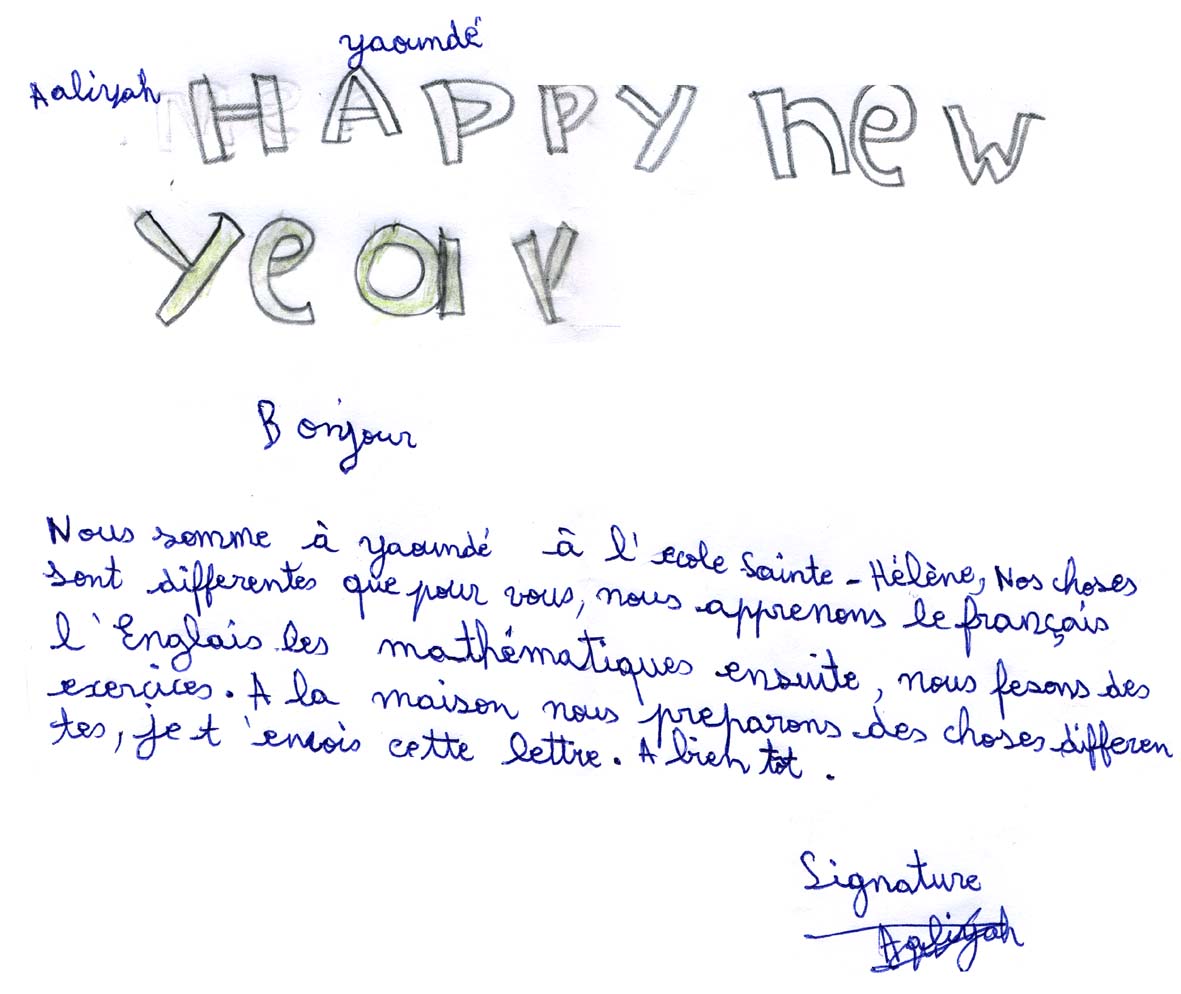 yaoundé
Aaliyah
HAppy new
year
Bonjour
Nous somme à yaoundé à l'ecole Sainte-Hélène, Nos choses
sont differentes que pour vous, nous apprenons le français
l'Englais les mathématiques ensuite, nous fesons des
exercices. A la maison nous preparons des choses differen
tes, je t'envois cette lettre. A bien tot.
Signature
Aaliyah